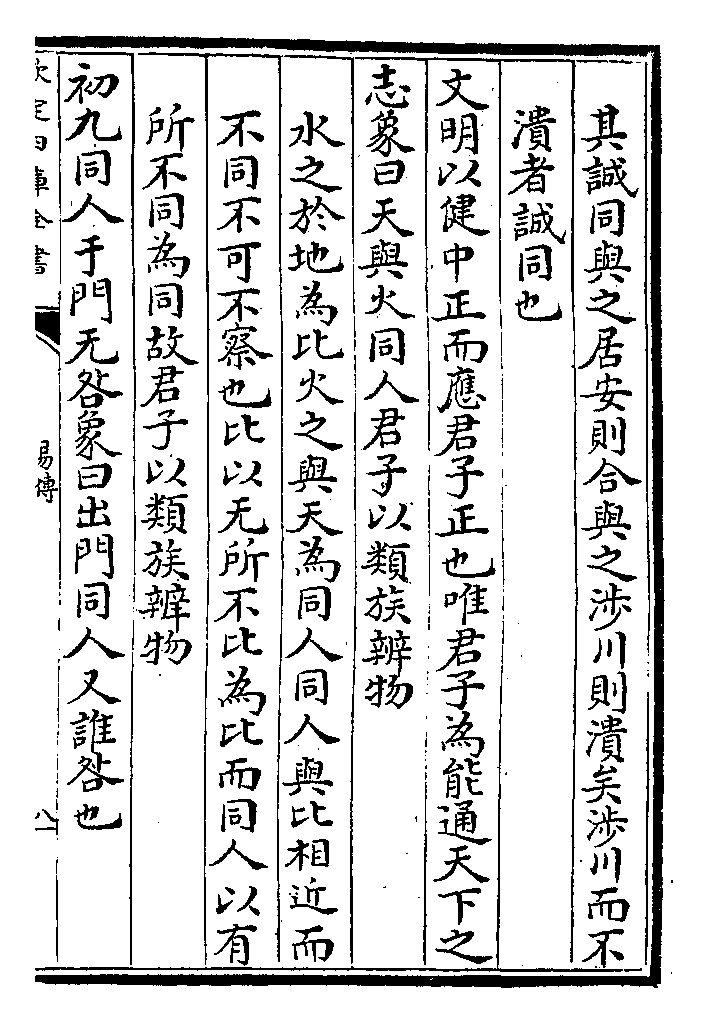 其誠同與之居安則合與之涉川則潰矣涉川而不
潰者誠同也
文明以健中正而應君子正也唯君子為能通天下之
志象曰天與火同人君子以類族辨物
水之於地為比火之與天為同人同人與比相近而
不同不可不察也比以无所不比為比而同人以有
所不同為同故君子以類族辨物
初九同人于門无咎象曰出門同人又誰咎也
欽定四庫全書
易傳
八